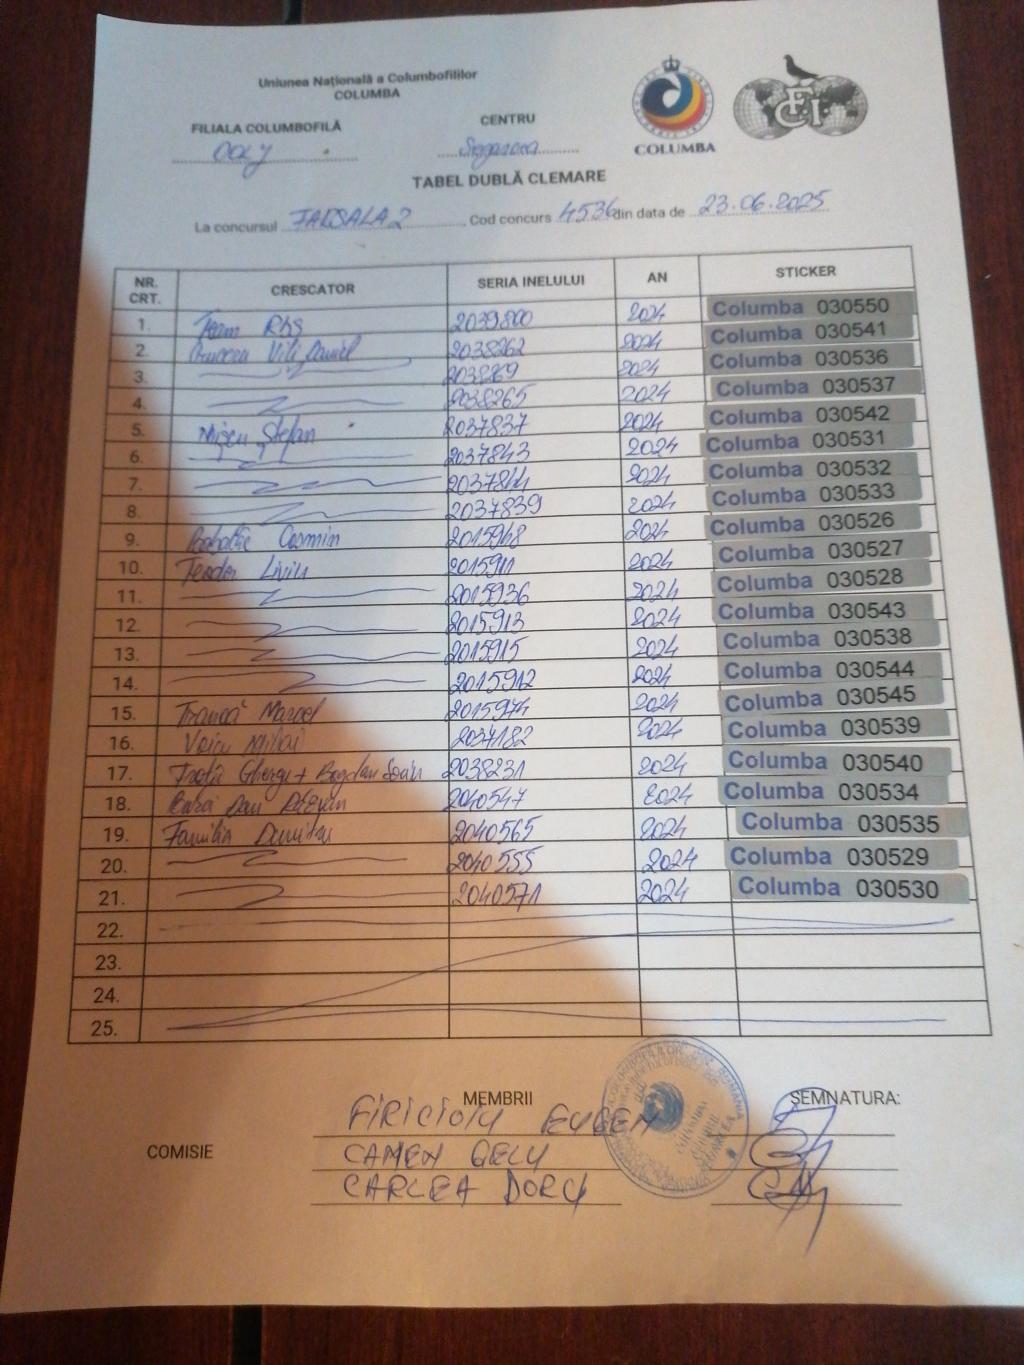 Uniunea Națională a Columbofililor
COLUMBA
FILIALA COLUMBOFILĂ
DOLJ
CENTRU
Segarcea
COLUMBA
FCI
TABEL DUBLĂ CLEMARE
La concursul FARSALA 2, Cod concurs 4536 din data de 23.06.2025
NR. CRT. CRESCATOR SERIA INELULUI AN STICKER
1. Team Rhs 2039800 2024 Columba 030550
2. Vili Daniel 2038262 2024 Columba 030541
3. 2038269 2024 Columba 030536
4. 2038265 2024 Columba 030537
5. Mișcu Ștefan 2037837 2024 Columba 030542
6. 2037843 2024 Columba 030531
7. 2037844 2024 Columba 030532
8. 2037839 2024 Columba 030533
9. Cosmin 2015948 2024 Columba 030526
10. Teodor Liviu 2015911 2024 Columba 030527
11. 2015936 2024 Columba 030528
12. 2015913 2024 Columba 030543
13. 2015915 2024 Columba 030538
14. 2015912 2024 Columba 030544
15. Marcel 2015974 2024 Columba 030545
16. Voicu Mihai 2037182 2024 Columba 030539
17. + Bogdan 2038231 2024 Columba 030540
18. Dan Răzvan 2040547 2024 Columba 030534
19. Familia Dumitru 2040565 2024 Columba 030535
20. 2040555 2024 Columba 030529
21. 2040571 2024 Columba 030530
22.
23.
24.
25.
MEMBRII
SEMNATURA:
COMISIE
FIRICIOIU EUGEN
CAMEN GELU
CARCEA DORU